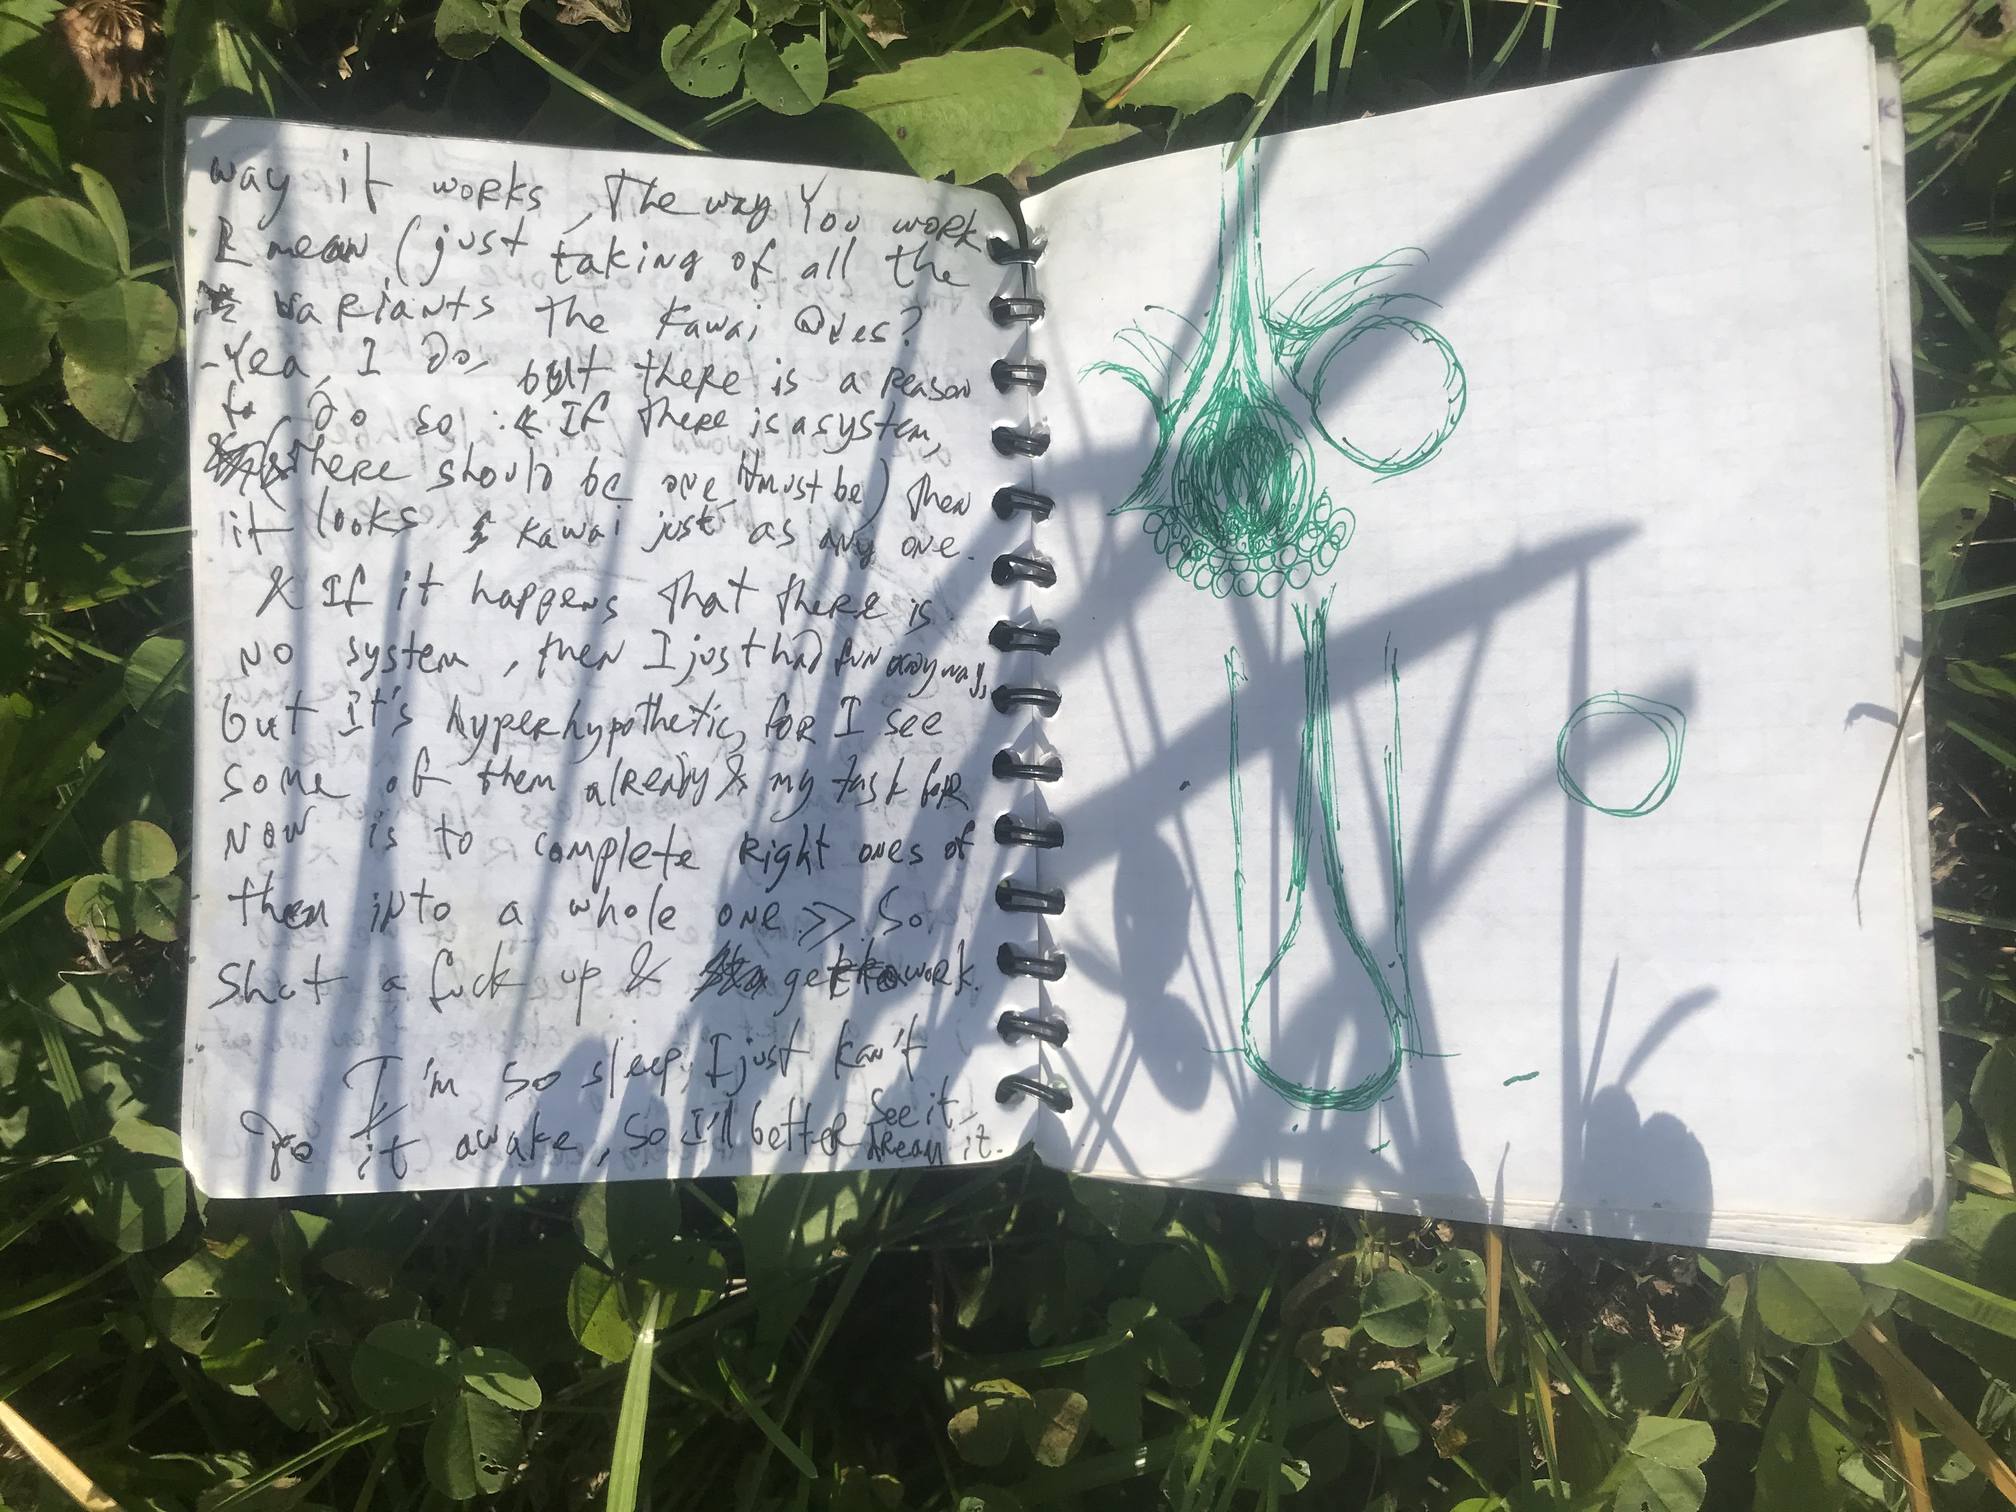 way it works, The way You work
I mean (just taking of all the
variants the Kawai Ones?
-Yea, I do, but there is a reason
to do so: « If there is a system,
(there should be one, must be) then
it looks kawai just as any one.
& If it happens that there is
no system, then I just had fun anyway,
but It's hyperhypothetic, for I see
some of them already & my task for
now is to complete right ones of
them into a whole one ». So
Shut a fuck up & get to work.
I'm so sleep, I just kan't
Do it awake, so I'll better See it,
dream it.